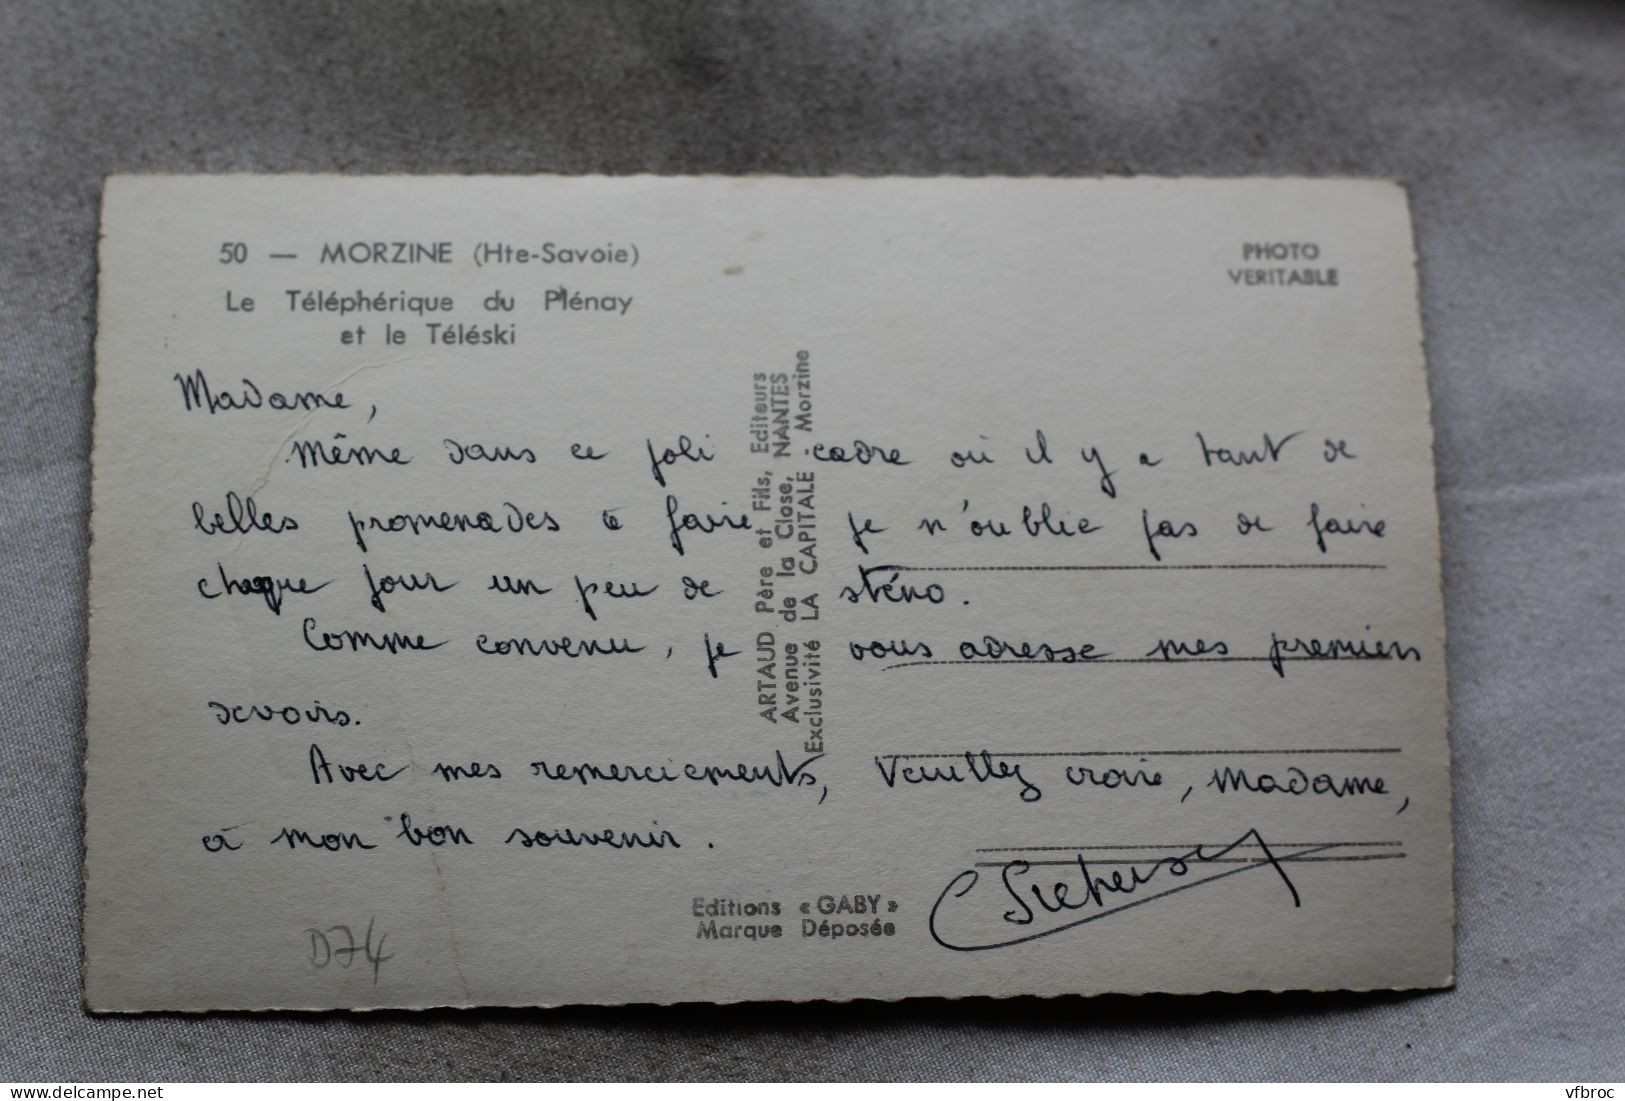 50 — MORZINE (Hte-Savoie)
Le Téléphérique du Plénay
et le Téléski
PHOTO
VERITABLE
Madame,
Même dans ce joli cadre où il y a tant de
belles promenades à faire je n'oublie pas de faire
chaque jour un peu de sténo.
Comme convenu, je vous adresse mes premiers
devoirs.
Avec mes remerciements, Veuillez croire, Madame,
à mon bon souvenir.
ARTAUD Père et Fils, Editeurs
Avenue de la Close, NANTES
Exclusivité LA CAPITALE Morzine
Editions « GABY »
Marque Déposée
D74
delcampe.net
vfbroc